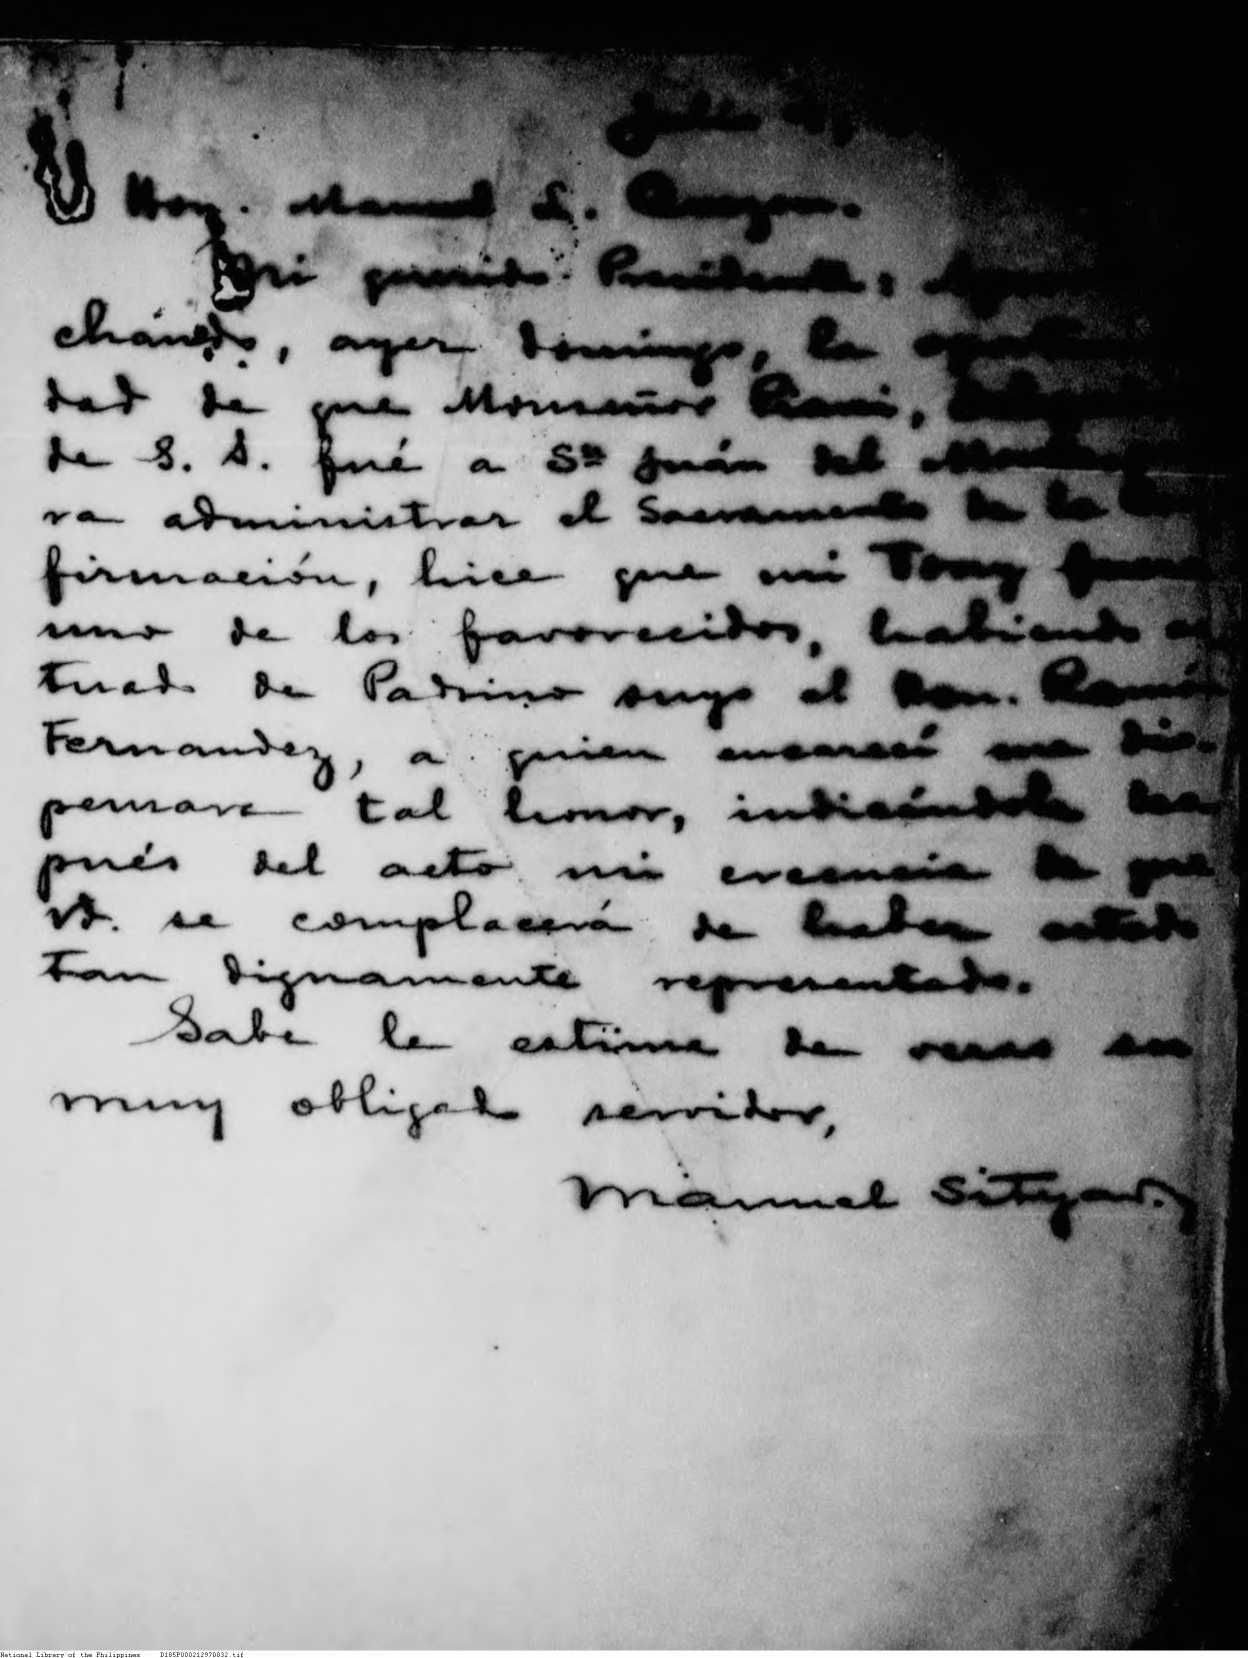 Julio
Hon. Manuel L. Quezon.
Mi querido Presidente:
chándo, ayer domingo, la
dad de que Monseñor Piani,
de S. S. fué a Sn Juán del
ra administrar el Sacramento de la
firmación, hice que mi Tony fuera
uno de los favorecidos, habiendo ac
tuado de Padrino suyo el Hon. Ramón
Fernandez, a quien encarecí me dis-
pensara tal honor, indicándole des
pués del acto mi creencia de que
Vd. se complacerá de haber estado
tan dignamente representado.
Sabe le estima de veras su
muy obligado servidor,
Manuel Sityar.
National Library of the Philippines D185P000212970832.tif